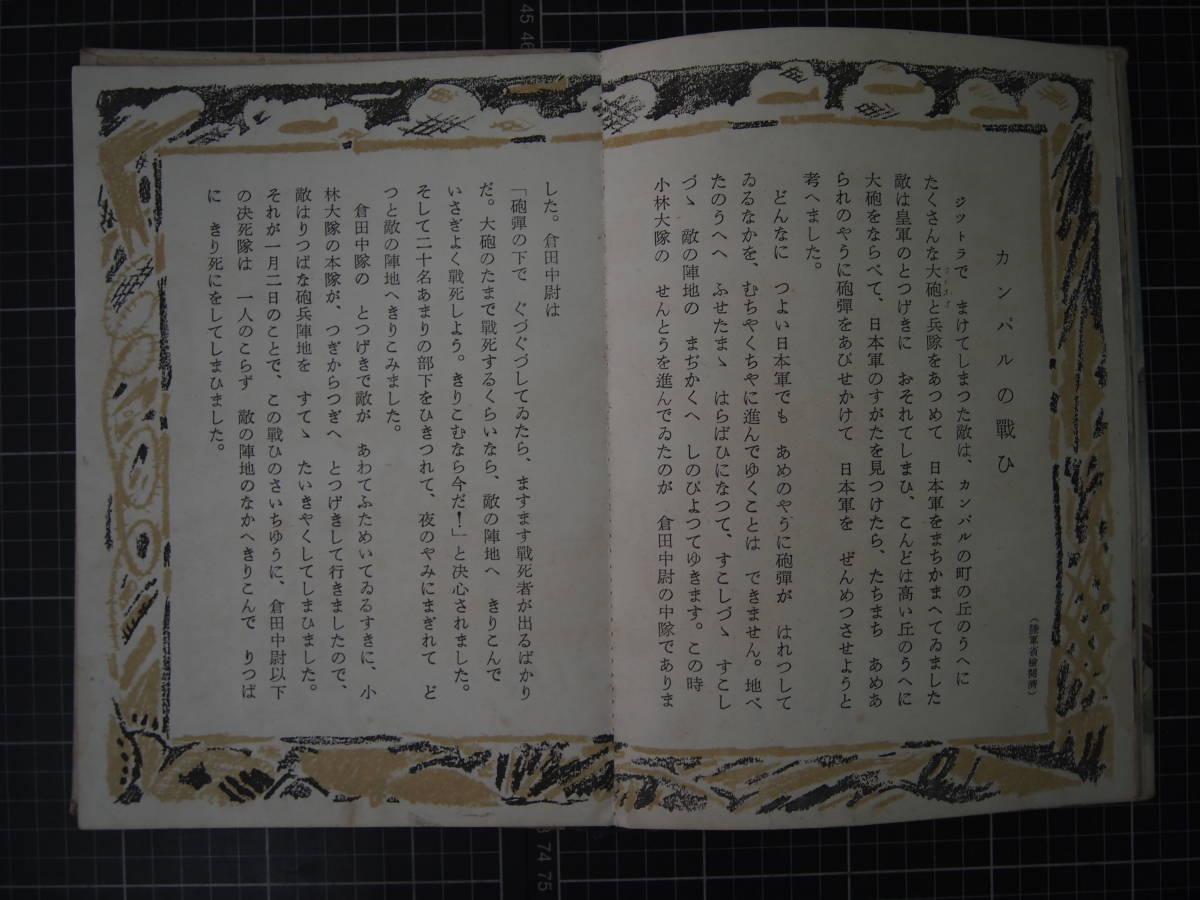 カンパルの戰ひ
（陸軍省檢閲濟）
ジツトラで　まけてしまつた敵は、カンパルの町の丘のうへに
たくさんな大砲と兵隊をあつめて　日本軍をまちかまへてゐました
敵は皇軍のとつげきに　おそれてしまひ、こんどは高い丘のうへに
大砲をならべて、日本軍のすがたを見つけたら、たちまち　あめあ
られのやうに砲彈をあびせかけて　日本軍を　ぜんめつさせようと
考へました。
どんなに　つよい日本軍でも　あめのやうに砲彈が　はれつして
ゐるなかを、むちやくちやに進んでゆくことは　できません。地べ
たのうへへ　ふせたまゝ　はらばひになつて、すこしづゝ　すこし
づゝ　敵の陣地の　まぢかくへ　しのびよつてゆきます。この時
小林大隊の　せんとうを進んでゐたのが　倉田中尉の中隊でありま
した。倉田中尉は
「砲彈の下で　ぐづぐづしてゐたら、ますます戰死者が出るばかり
だ。大砲のたまで戰死するくらいなら、敵の陣地へ　きりこんで
いさぎよく戰死しよう。きりこむなら今だ！」と決心されました。
そして二十名あまりの部下をひきつれて、夜のやみにまぎれて　ど
つと敵の陣地へきりこみました。
倉田中隊の　とつげきで敵が　あわてふためいてゐるすきに、小
林大隊の本隊が、つぎからつぎへ　とつげきして行きましたので、
敵はりつぱな砲兵陣地を　すてゝ　たいきやくしてしまひました。
それが一月二日のことで、この戰ひのさいちゆうに、倉田中尉以下
の決死隊は　一人のこらず　敵の陣地のなかへきりこんで　りつぱ
に　きり死にをしてしまひました。
45 46
74 75